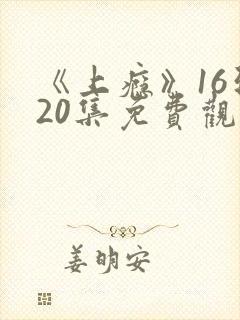 《上瘾》16到
20集免費觀
姜明安